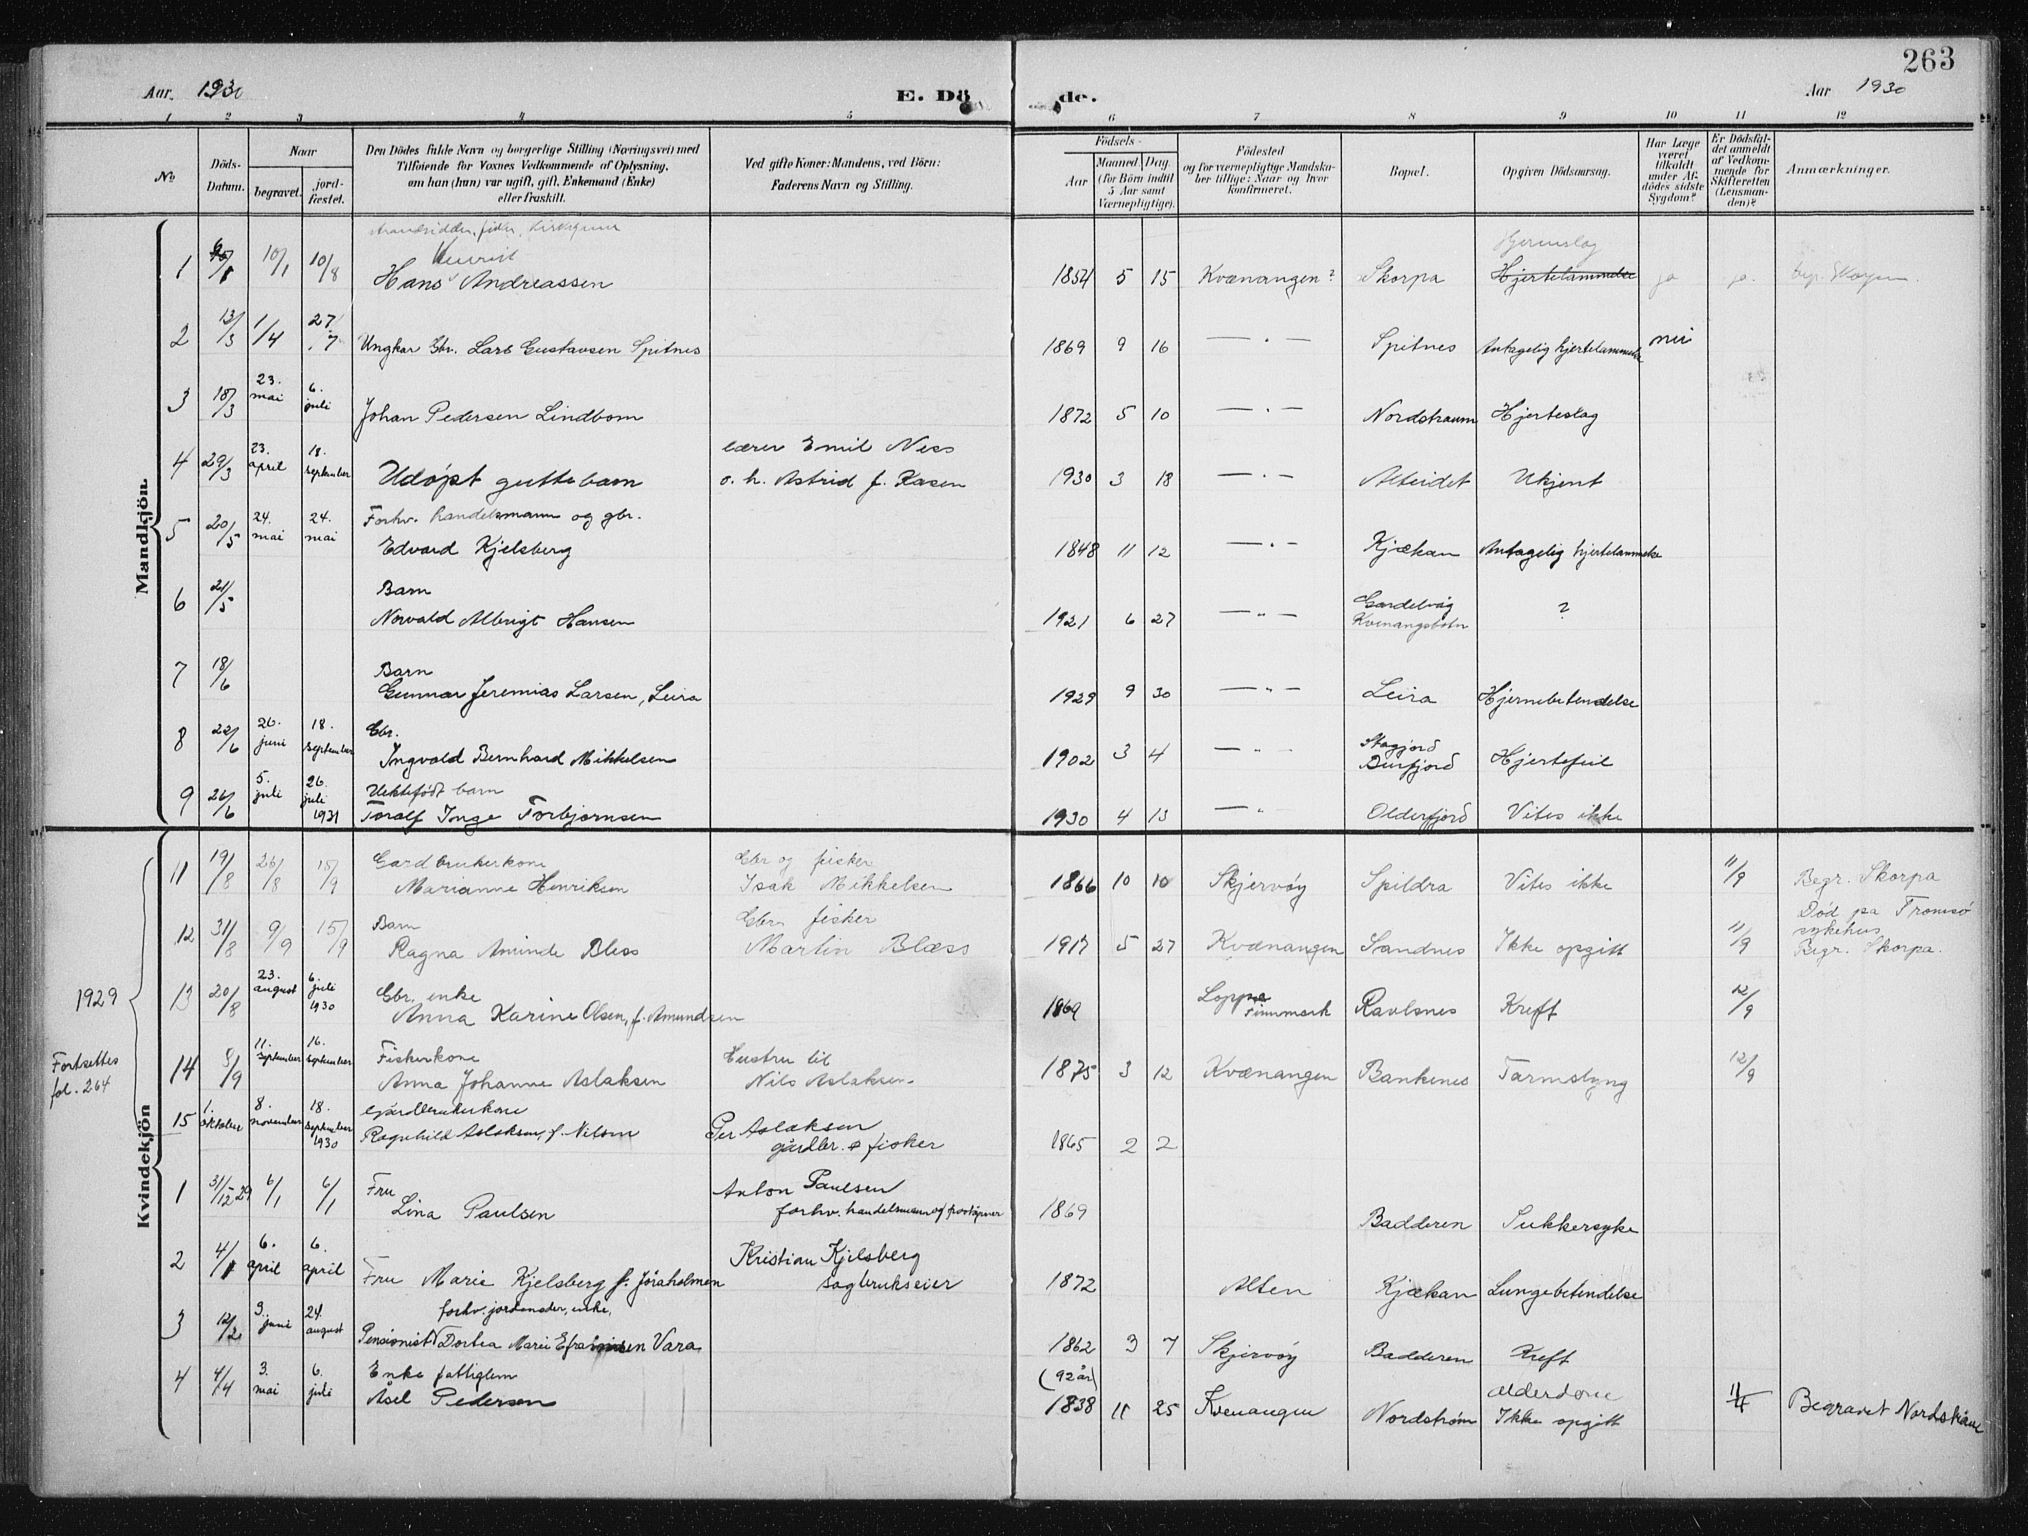 263
Aar. 1930
E. Dö
de.
Aar 1930
1 2 3 4 5 6 7 8 9 10 11 12
No
Döds-
Datum.
Naar
begravet.
jord-
fæstet.
Den Dödes fulde Navn og borgerlige Stilling (Næringsvei) med
Tilföiende for Voxnes Vedkommende af Oplysning,
om han (hun) var ugift, gift, Enkemand (Enke)
eller fraskilt.
Ved gifte Koner: Mandens, ved Börn:
Faderens Navn og Stilling.
Födsels-
Aar
Maaned. Dag.
(for Börn indtil
5 Aar samt
Værnepligtige).
Födested
og for værnepligtige Mandska-
ber tillige: Naar og hvor
konfirmeret.
Bopæl.
Opgiven Dödsaarsag.
Har Læge
været
tilkaldt
under Af-
dödes sidste
Sygdom?
Er Dödsfal-
det anmeldt
af Vedkom-
mende for
Skifteretten
(Lensman-
den)?
Anmærkninger.
Mandkjön
Hjerneslag
1 10/1 10/8 Hans Andreassen 1854 5 15 Kvænangen? Skorpa Hjertelammelse ja ja.
2 13/3 1/4 27/7 Ungkar Gbr. Lars Gustavsen Spitnes 1869 9 16 — " — Spitnes Antagelig hjertelammelse nei
3 18/3 23. mai 6. juli Johan Pedersen Lindbom 1872 5 10 — " — Nordstraum Hjerteslag
lærer Emil Ness
4 29/3 23. april 18. september Udøpt guttebarn o. h. Astrid f. Kasen 1930 3 18 — " — Alteidet Ukjent
Forhv. handelsmann og gbr.
5 20/5 24. mai 24. mai Edvard Kjelsberg 1848 11 12 — " — Kjækan Antagelig hjertelammelse
Barn
6 21/5 Norvald Albrigt Hansen 1921 6 27 — " — Kvenangsbotn ?
Barn
7 18/6 Gunnar Jeremias Larsen, Leira 1929 9 30 — " — Leira Hjernebetendelse
Gbr.
8 22/6 26. juni 18. september Ingvald Bernhard Mikkelsen 1902 3 4 — " — Burfjord Hjertefeil
Uektefödt barn
9 26/6 5. juli 26. juli 1931 Toralf Inge Torbjørnsen 1930 4 13 — " Olderfjord Vites ikke
Kvindekjön
1929
Fortsettes
fol. 264
Gardbrukerkone Gbr og fisker
11 19/8 26/8 15/9 Marianne Henriksen Isak Mikkelsen 1866 10 10 Skjervöy Spildra Vites ikke 11/9 Begr. Skorpa
Barn Gbr. fisker Död pa Tromsö
sykehus
12 31/8 9/9 15/9 Ragna Aminde Bless Martin Blæss 1917 5 27 Kvænangen Sandnes Ikke opgitt 11/9 Begr. Skorpa.
Gbr. enke
13 20/8 23. august 6. juli 1930 Anna Karine Olsen, f. Amundsen 1869 Loppa Finnmark Ravlsnes Kreft 12/9
Fiskerkone Hustru til
14 8/9 11. september 16. september Anna Johanne Aslaksen Nils Aslaksen. 1875 3 12 Kvænangen Bankenes Tarmslyng 12/9
Gårdbrukerkone Per Aslaksen
15 1. oktober 8. november 18. september 1930 Ragnhild Aslaksen, f. Nilsen gårdbr. & fisker 1865 2 2
Fru Anton Paulsen
1 31/12-29 6/1 6/1 Lina Paulsen forhv. handelsmann og poståpner 1869 Badderen Sukkersyke
Kristian Kjelsberg
2 4/1 6. april 6. april Fru Marie Kjelsberg f. Jöraholmen sagbrukseier 1872 Alten Kjækan Lungebetendelse
forhv. jordemoder, enke,
3 12/2 3. juni 24. august Pensionist Dortea Marie Efraimsen Vara 1862 3 7 Skjervöy Badderen Kreft
Enke fattiglem (92 år) Alderdom
4 4/4 3. mai 6. juli Åsel Pedersen 1838 11 25 Kvenangen Nordstrøm Ikke opgitt Begravet Nordstraum